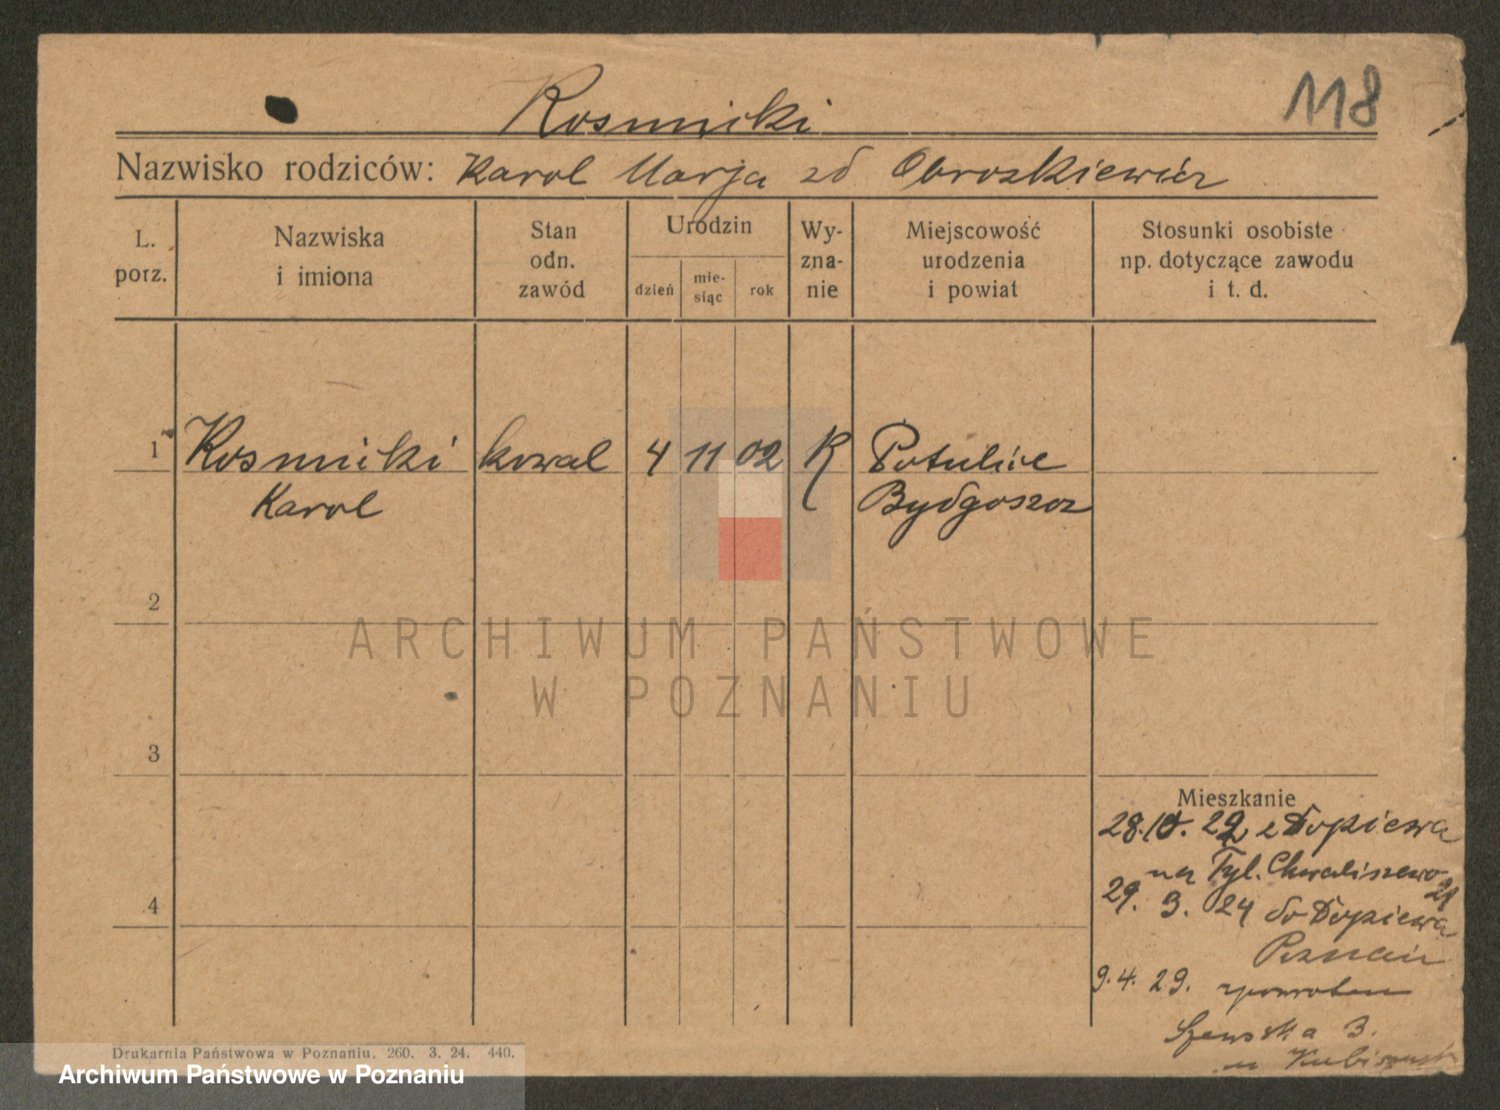 118
Kosmicki
Nazwisko rodziców: Karol Marja zd Obroszkiewicz
L. porz.
Nazwiska i imiona
Stan odn. zawód
Urodzin
dzień
mie-
siąc
rok
Wy-
zna-
nie
Miejscowość
urodzenia
i powiat
Stosunki osobiste
np. dotyczące zawodu
i t. d.
1 Kosmicki kowal 4 11 02 K Potulice
Karol Bydgoszcz
2
3
4
Mieszkanie
28.10.22 z Dopiewa
na Tyl. Chwaliszewo 21
29. 3. 24 do Dopiewa
Poznań
9.4.29. zpowrotem
Szewska 3.
u
Drukarnia Państwowa w Poznaniu. 260. 3. 24. 440.
ARCHIWUM PAŃSTWOWE
W POZNANIU
Archiwum Państwowe w Poznaniu